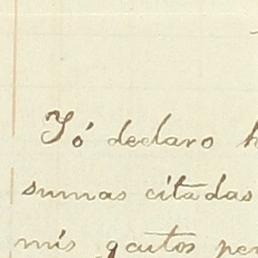 Yó declaro h
sumas citadas
mis gastos per